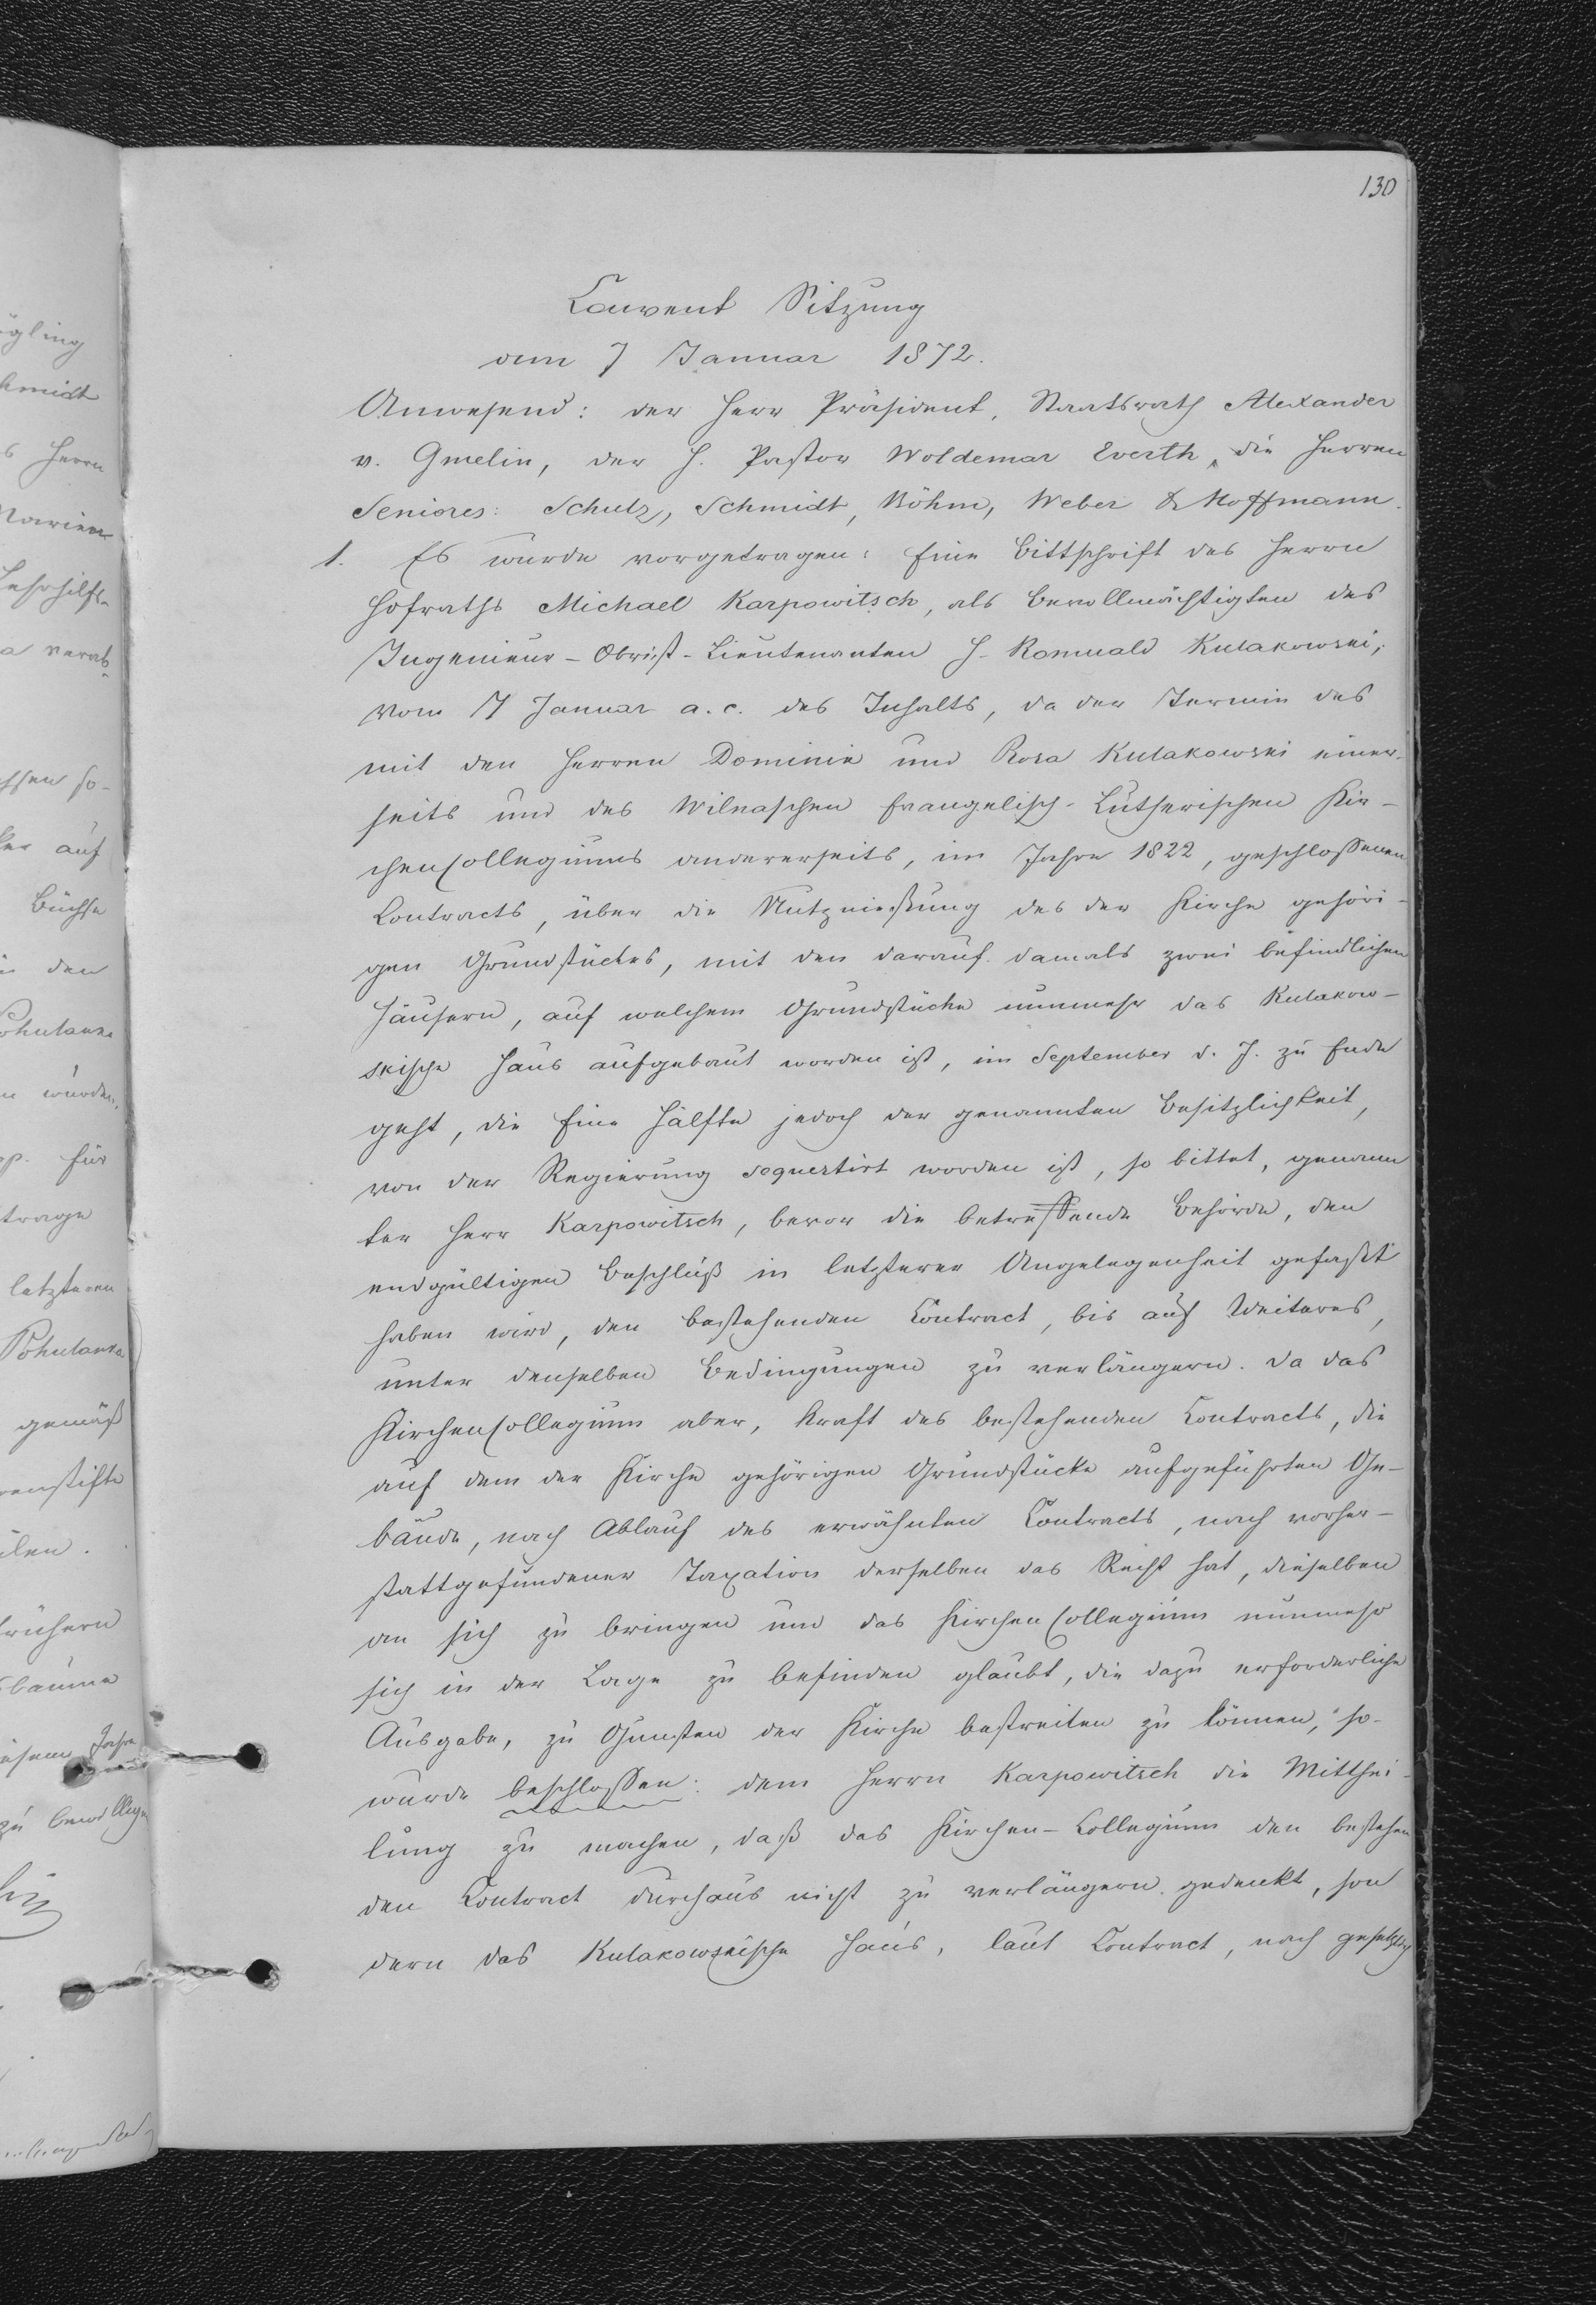 130
Convent Sitzung
vom 7 Januar 1872.
Anwesend: der Herr Präsident, Staatsrath Alexander
v. Gmelin, der H. Pastor Woldemar Everth, die Herren
Seniores: Schulz, Schmidt, Böhm, Weber & Hoffmann.
1. Es wurde vorgetragen: Eine Bittschrift des Herrn
Hofraths Michael Karpowitsch, als Bevollmächtigten des
Ingenieur-Obrist-Lieutenanten H. Romuald Kulakowski,
vom 7 Januar a.c. des Inhalts, da der Termin des
mit den Herren Dominik und Rosa Kulakowski einer-
seits und des Wilnaschen Evangelisch-Lutherischen Kir-
chencollegiums andererseits, im Jahre 1822, geschlossenen
Contracts, über die Nutznießung des der Kirche gehöri-
gen Grundstückes, mit den darauf damals zwei befindlichen
Häusern, auf welchem Grundstücke nunmehr das Kulakow-
skische Haus aufgebaut worden ist, im September d. J. zu Ende
geht, die Eine Hälfte jedoch der genannten Besitzlichkeit,
von der Regierung sequestirt worden ist, so bittet, genann
ter Herr Karpowitsch, bevor die betreffende Behörde, den
endgültigen Beschluß in letzterer Angelegenheit gefaßt
haben wird, den bestehenden Contract, bis auf Weiteres,
unter denselben Bedingungen zu verlängern. Da das
Kirchencollegium aber, kraft des bestehenden Contracts, die
auf dem der Kirche gehörigen Grundstücke aufgeführten Ge-
bäude, nach Ablauf des erwähnten Contracts, nach vorher-
stattgefundener Taxation derselben das Recht hat, dieselben
an sich zu bringen und das Kirchencollegium nunmehr
sich in der Lage zu befinden glaubt, die dazu erforderliche
Ausgabe, zu Gunsten der Kirche bestreiten zu können, so-
wurde beschlossen: dem Herrn Karpowitsch die Mitthei-
lung zu machen, daß das Kirchen-Collegium den bestehen
den Contract durchaus nicht zu verlängern gedenkt, son
dern das Kulakowskische Haus, laut Contract, nach gesetzlich